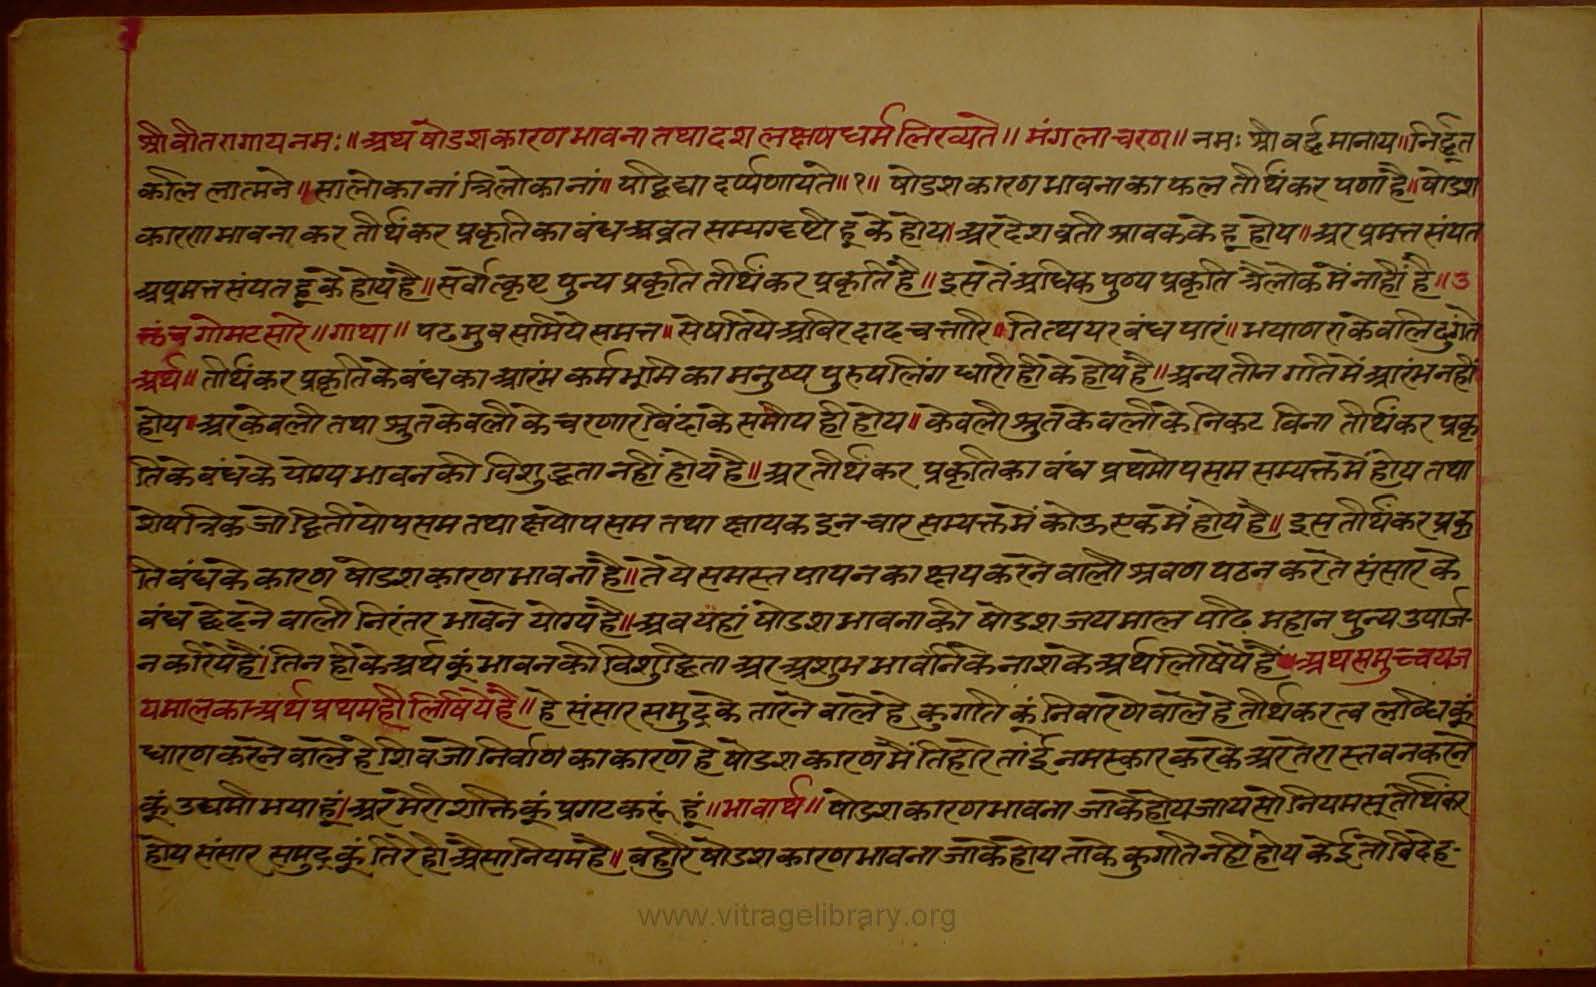 श्री वीतरागाय नमः॥ अथ षोडशकारण भावना तथा दश लक्षण धर्म लिख्यते॥ मंगलाचरण॥ नमः श्री वर्द्धमानाय॥ निर्द्धूत
कलिलात्मने॥ सालोकानां त्रिलोकानां॥ यद्विद्या दर्प्पणायते॥१॥ षोडशकारण भावना का फल तीर्थंकर पणा है॥ षोडश
कारण भावना कर तीर्थंकर प्रकृति का बंध अव्रत सम्यग्दृष्टी हू के होय। अर देशव्रती श्रावक के हू होय॥ अर प्रमत्त संयत
अप्रमत्त संयत हू के होय है॥ सर्वोत्कृष्ट पुन्य प्रकृति तीर्थंकर प्रकृति है॥ इस तें अधिक पुण्य प्रकृति त्रैलोक में नाहीं है॥ उ
क्तंच गोमटसारे॥ गाथा॥ पढमुवसमिये समत्त॥ सेषतिये अविरदादचत्तारि॥ तित्थयर बंध पारं॥ भयाणरा केवलि दुगंते
अर्थ॥ तीर्थंकर प्रकृति के बंध का आरंभ कर्मभूमि का मनुष्य पुरुषलिंग धारी ही के होय है॥ अन्य तीन गति में आरंभ नहीं
होय॥ अर केवली तथा श्रुत केवली के चरणारविंदा के समीप ही होय॥ केवली श्रुत केवली के निकट विना तीर्थंकर प्रकृ
ति के बंध के योग्य भावन की विशुद्धता नहीं होय है॥ अर तीर्थंकर प्रकृति का बंध प्रथमोपसम सम्यक्त में होय तथा
शेषत्रिक जो द्वितीयोपसम तथा क्षयोपसम तथा क्षायक इन चार सम्यक्त में कोऊ एक में होय है॥ इस तीर्थंकर प्रकृ
ति बंध के कारण षोडशकारण भावना है॥ ते ये समस्त पापन का क्षय करने वाली श्रवण पठन करते संसार के
बंध छेदने वाली निरंतर भावने योग्य है॥ अब यहां षोडश भावना की षोडश जयमाल पढि महान पुन्य उपार्ज-
न करिये है। तिन ही के अर्थ कूं भावन की विशुद्धिता अर अशुभ भावनि के नाश के अर्थ लिषिये है॥ अथ समुच्चय ज
यमाल का अर्थ प्रथम ही लिषिये है॥ हे संसार समुद्र के तारने वाले हे कुगति कूं निवारणे वाले हे तीर्थंकरत्व लब्धि कूं
धारण करने वाले हे शिव जो निर्वाण का कारण हे षोडशकारण मैं तिहारे तांई नमस्कार करके अर तेरा स्तवन करने
कूं उद्यमी भया हूं। अर मेरी शक्ति कूं प्रगट करूं हूं॥ भावार्थ॥ षोडशकारण भावना जाके होय जाय सो नियम सूं तीर्थंकर
होय संसार समुद्र कूं तिरे ही अैसा नियम है॥ बहुरि षोडशकारण भावना जाके होय ताके कुगति नहीं होय केई तो विदेह-
www.vitragelibrary.org